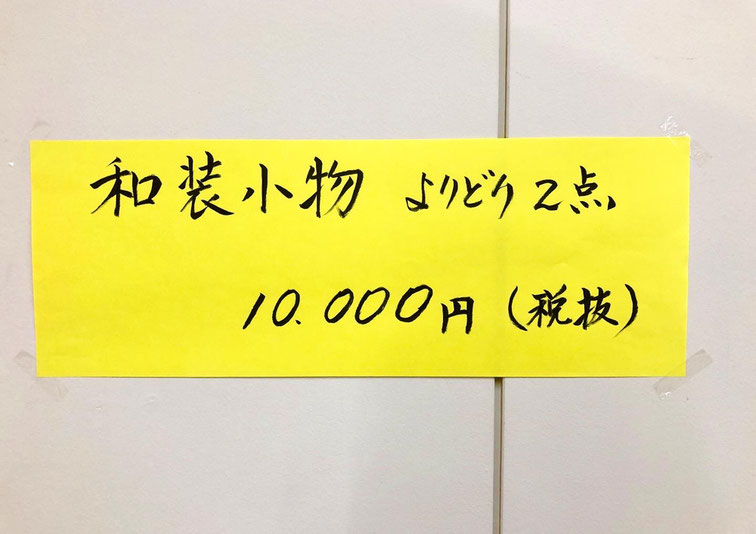 和装小物 よりどり2点
10.000円(税抜)